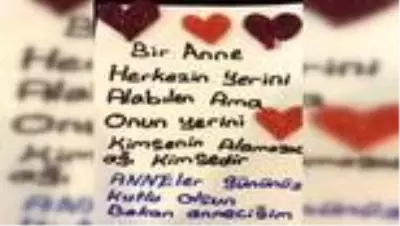 Bir Anne
Herkesin Yerini
Alabilen Ama
Onun Yerini
Kimsenin Alamayac
ağı Kimsedir
ANNEler gününüz
Kutlu Olsun
Bakan anneciğim